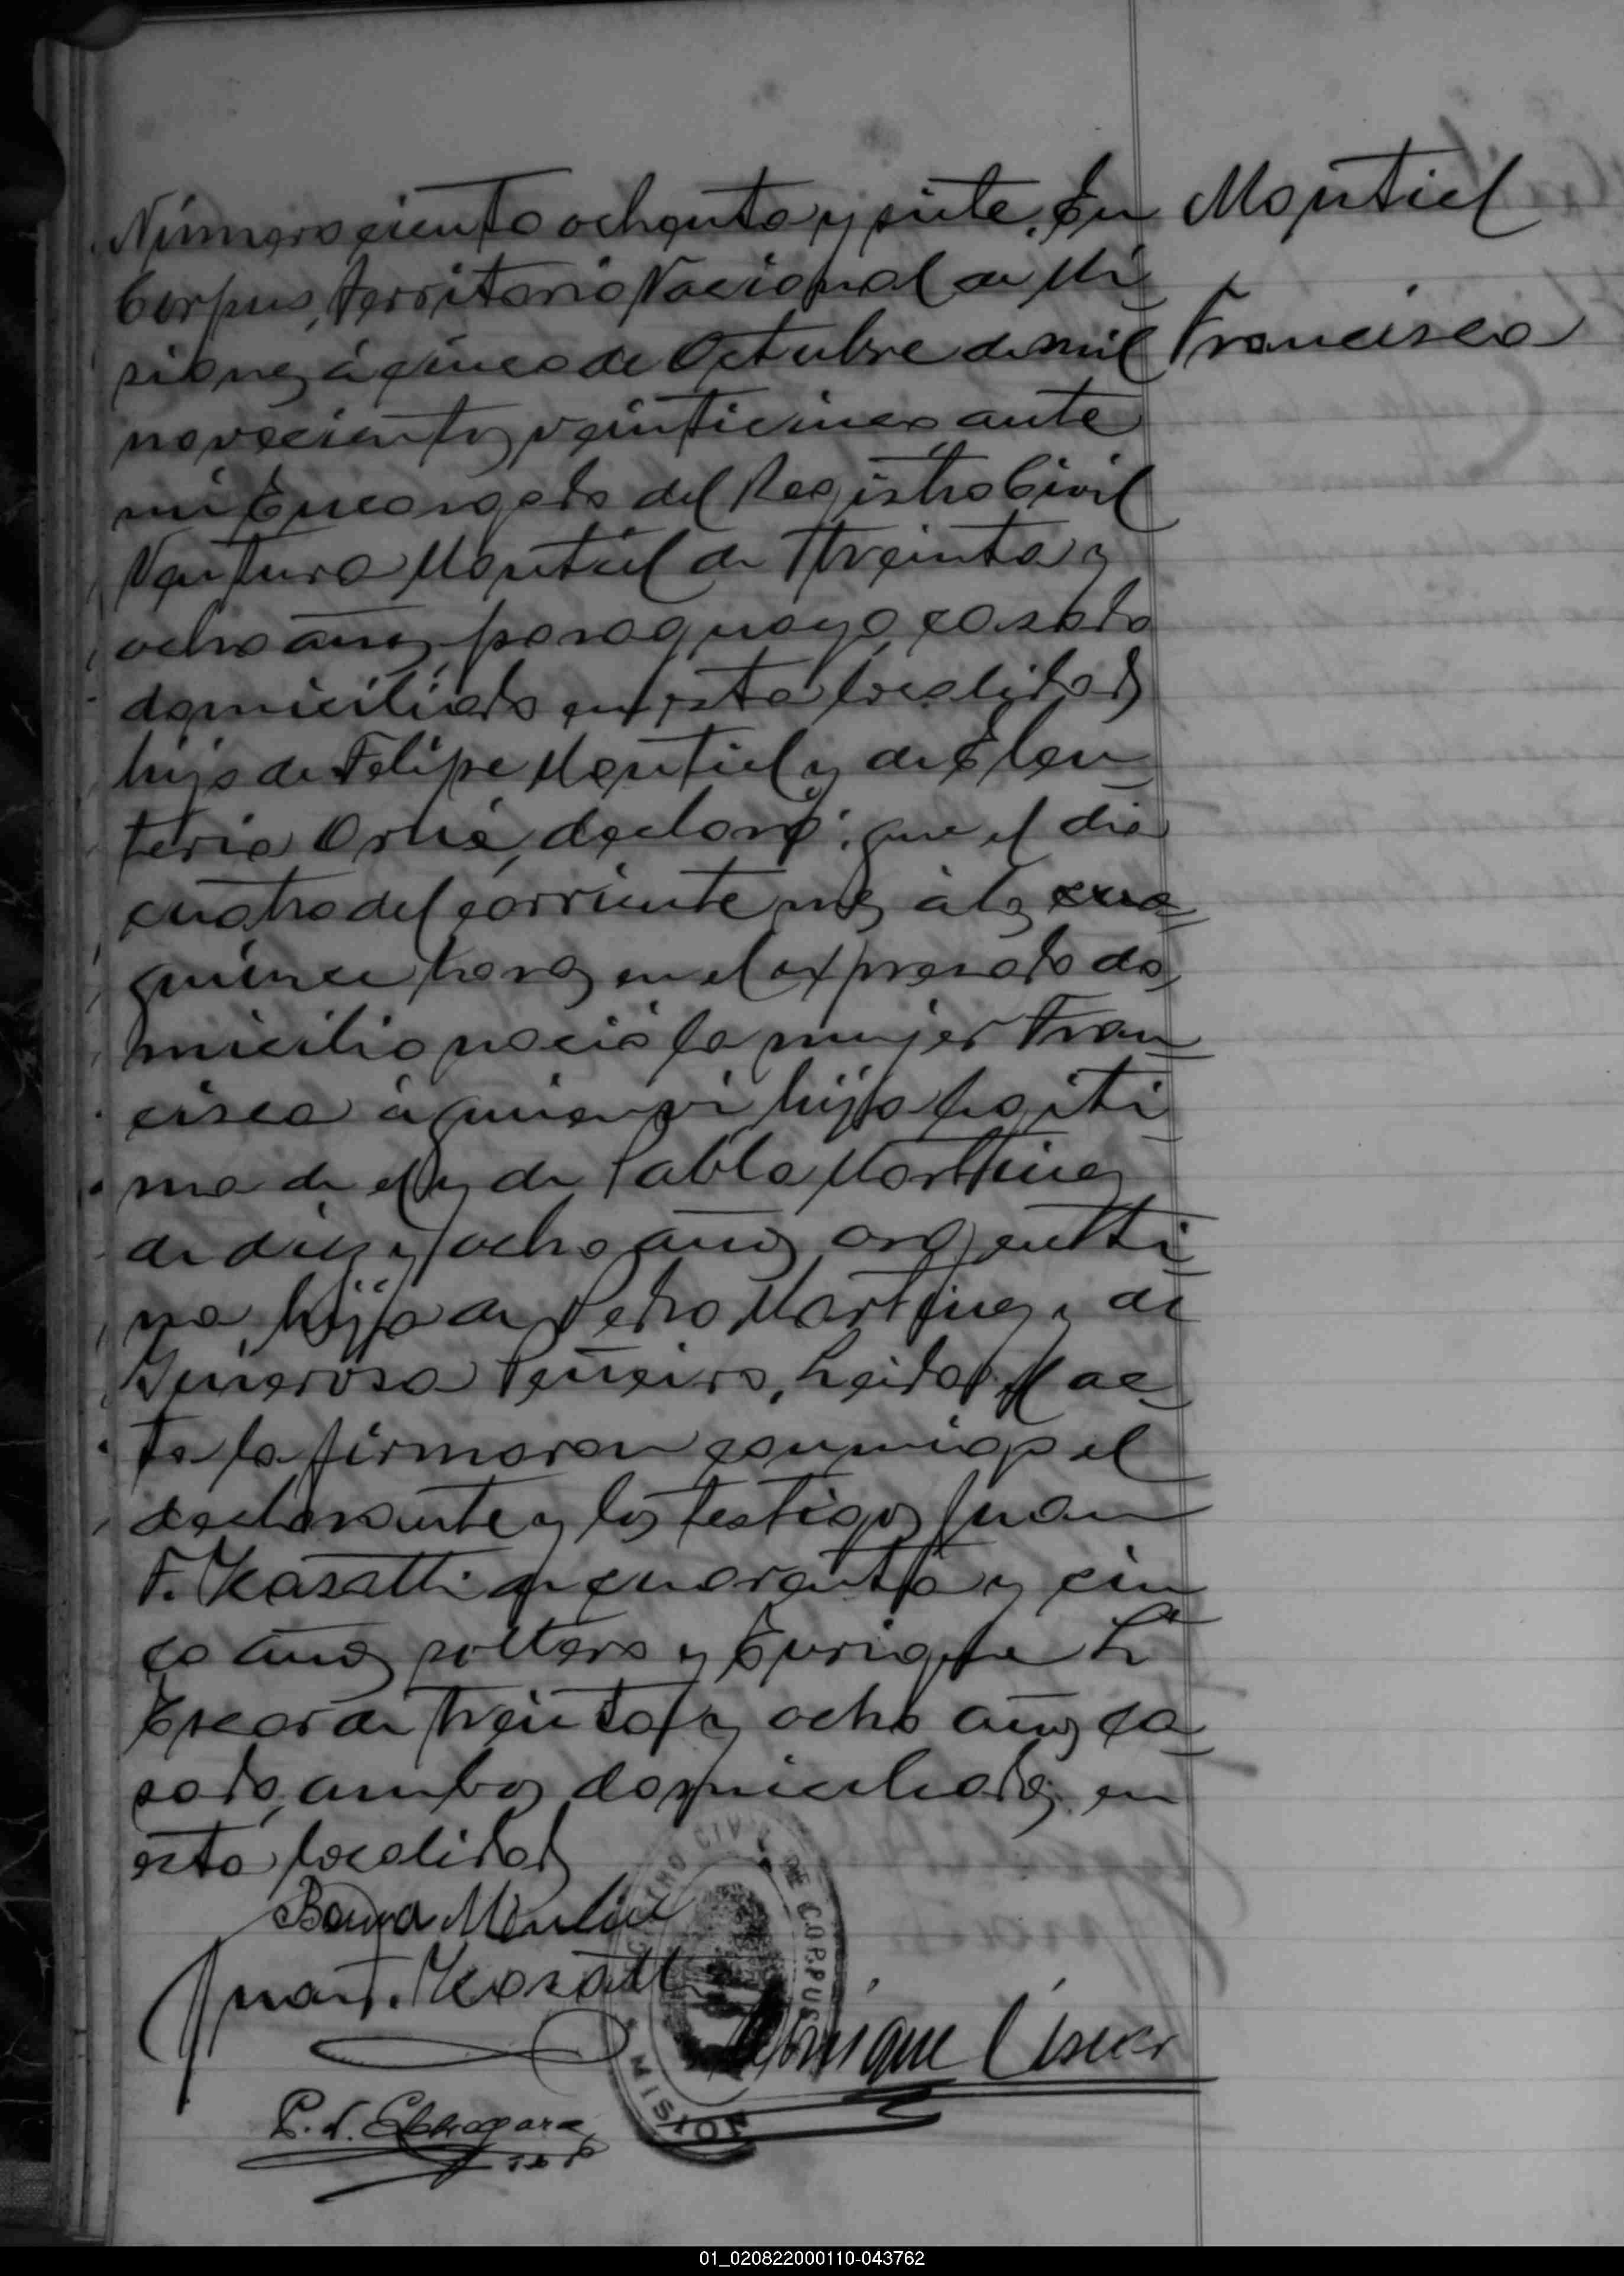 Número ciento ochenta y siete. En
Corpus, Territorio Nacional de Mi
siones, á cinco de Octubre de mil
novecientos veinticinco ante
mi Encargado del Registro Civil
Ventura Montiel de treinta y
ocho años, paraguayo, casado
domiciliado en esta localidad
hijo de Felipe Montiel y de Eleu
teria declaró: que el dia
cuatro del corriente mes á las
quince horas en el expresado do
micilio nació la mujer Fran
cisca á quien vi hija legiti
ma de el y de Pabla Martinez
de diez y ocho años, argenti
na, hija de Pedro Martinez y de
Generosa Piñeiro. Leida el ac
ta la firmaron conmigo el
declarante y los testigos Juan
F. Kasatti de cuarenta y cin
co años soltero y Enrique L
de treinta y ocho años ca
sado, ambos domiciliados en
esta localidad
Montiel
Francisca
Juan F. Kasatti
Enrique
REGISTRO CIVIL DE CORPUS
MISIONES
043762
01_020822000110-043762